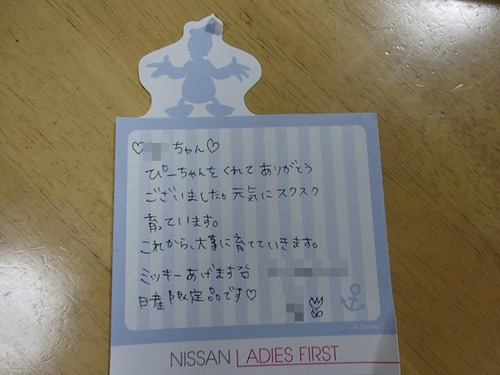 ♡ ちゃん♡
ぴーちゃんをくれてありがとう
ございました。元気にスクスク
育っています。
これから、大事に育てていきます。
ミッキーあげます
日産限定品です♡
© Disney
NISSAN LADIES FIRST